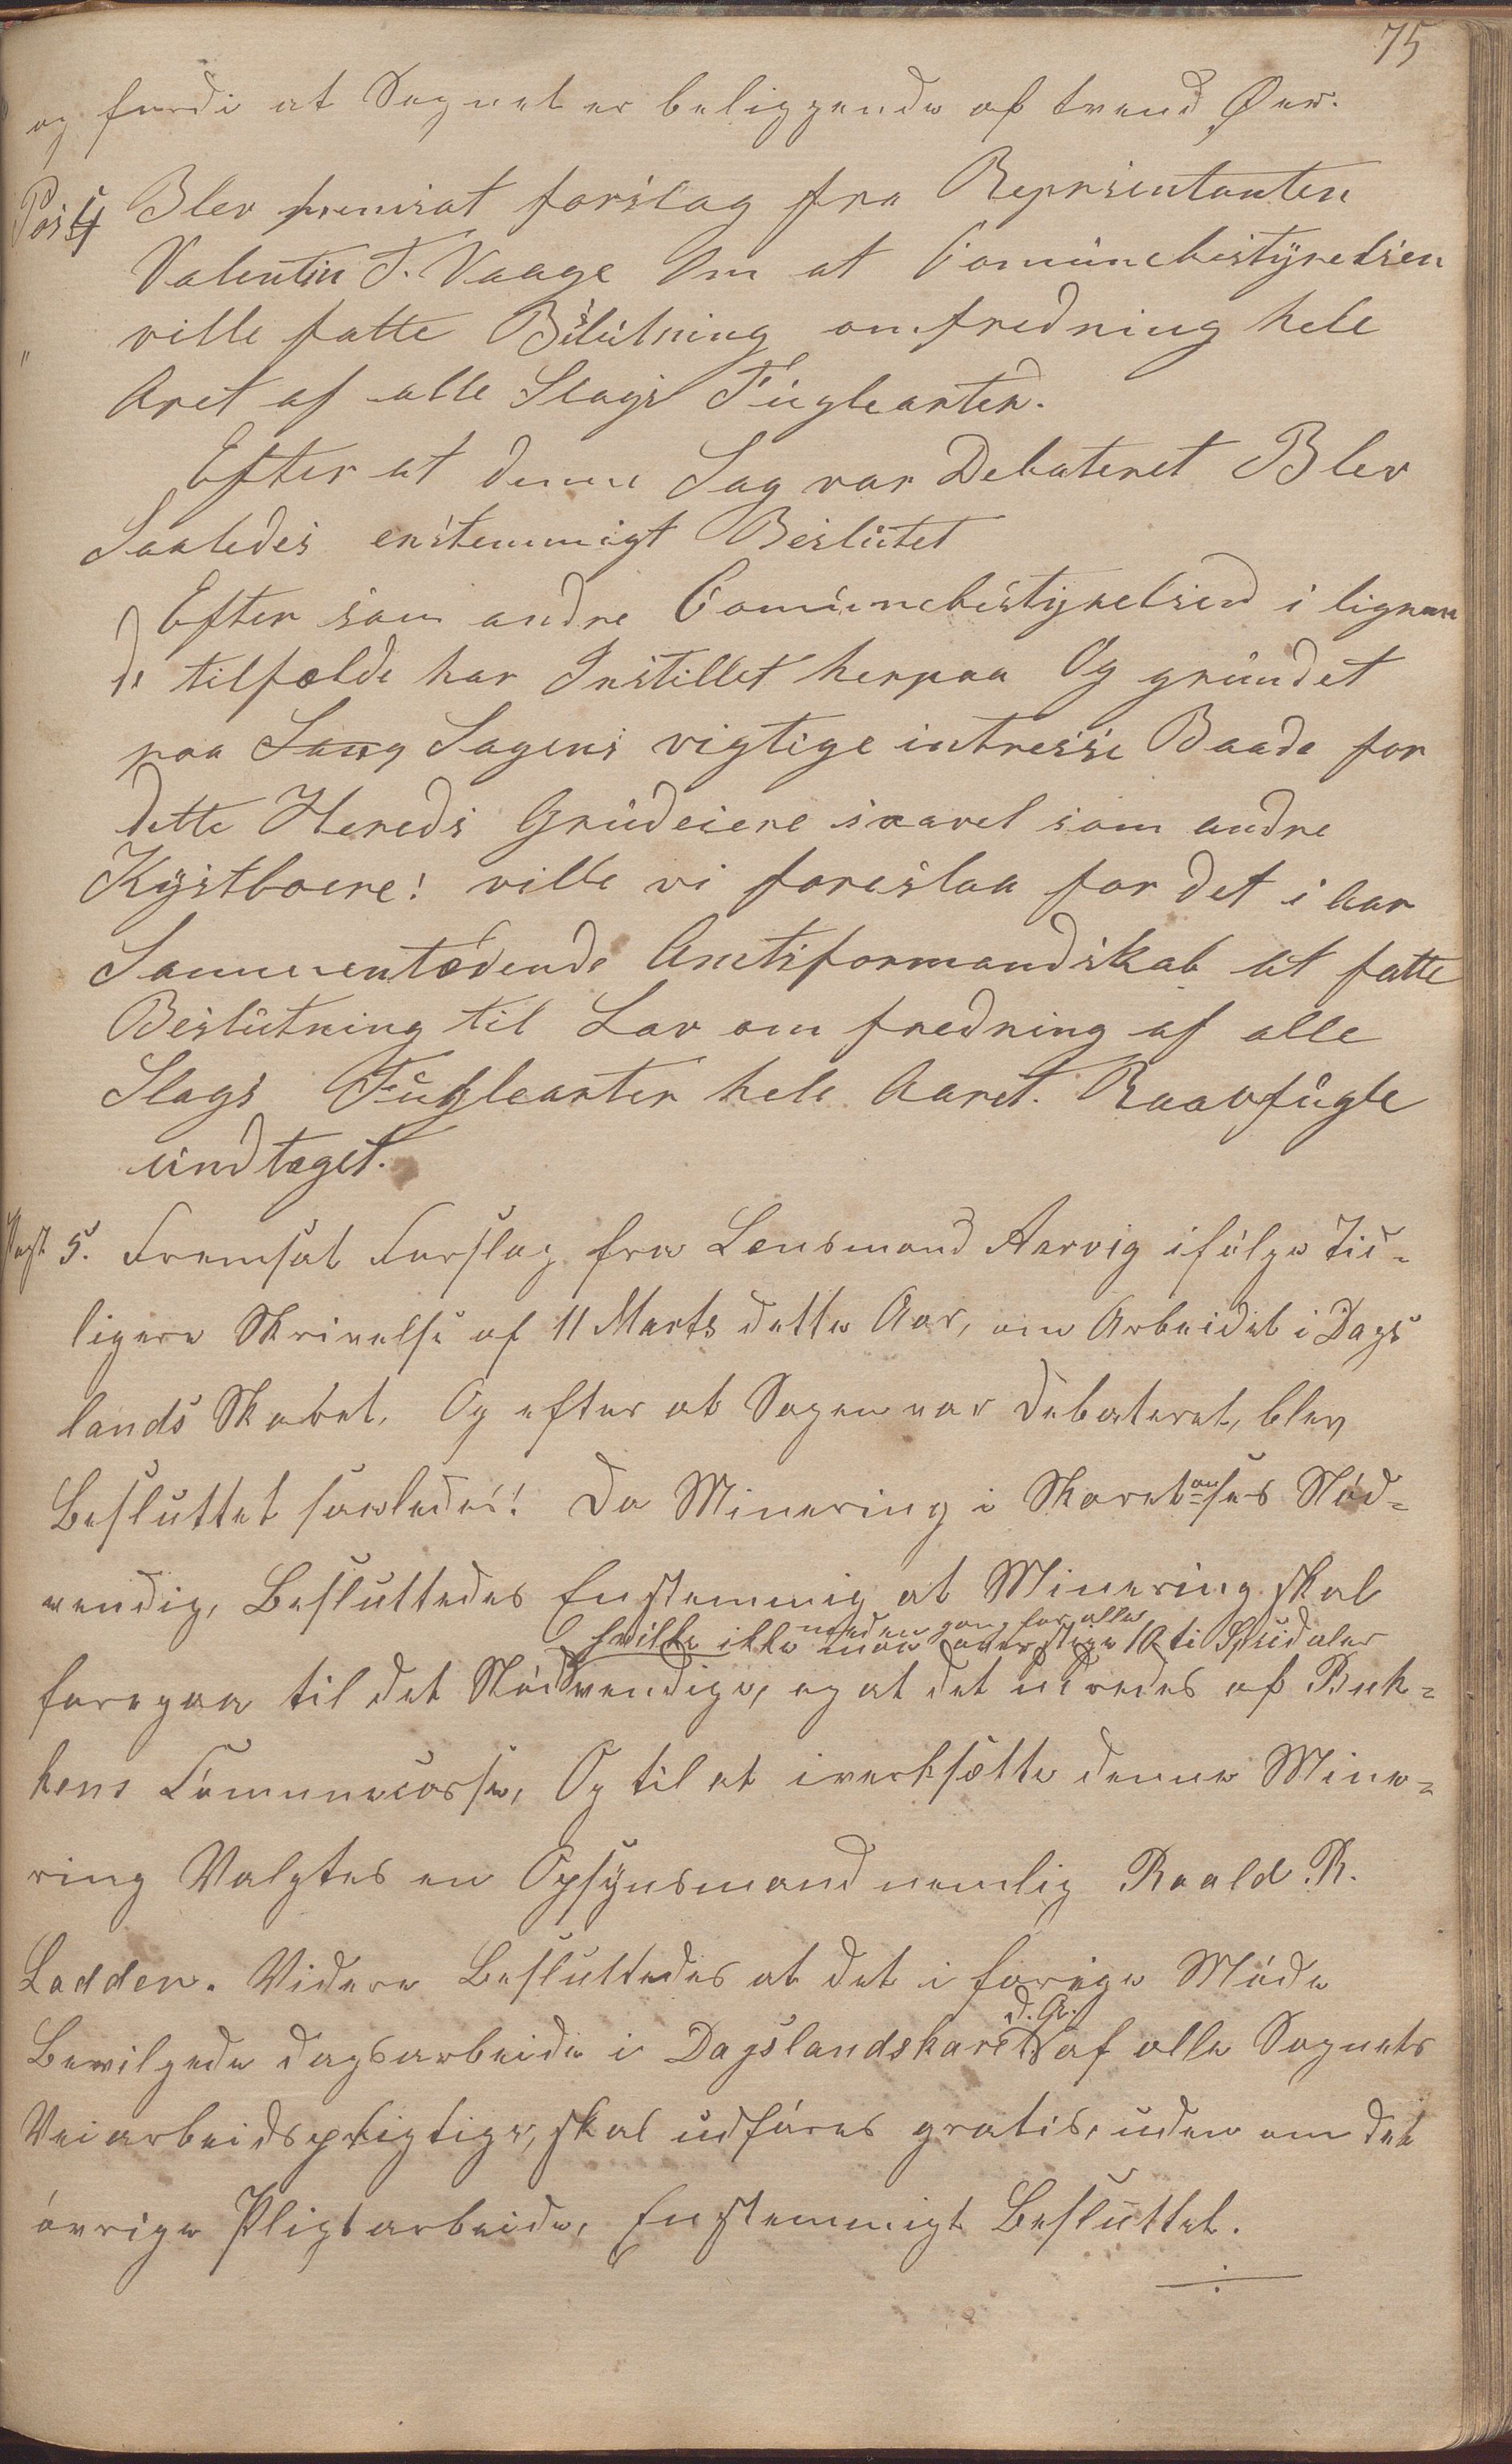 75
og fordi at Sognet er beliggende af trend Øer.
Post 4 Blev fremsat forslag fra Reprsentanten
Valentin T. Vaage Om at Comünebestÿrelsen
ville fatte Beslütning om fredning hele
Aret af alle Slags Füglearter.
Efter at denne Sag var Debateret Blev
Saaledes enstemmigt Beslütet
Efter som andre Comünebestÿrelser i lignen
de tilfælde har Instillet herpaa Og gründet
paa Sang Sagens vigtige intresse Baade for
dette Hereds Grüdeiere saavel som andre
Kÿstboere! ville vi foreslaa for det i aar
Sammentædende Amtsformandskab at fatte
Beslütning til Lov om fredning af alle
Slags Füglearter hele Aaret. Raavfügle
ündtaget.
Post 5. Fremsat Forslag fra Lensmand Aarvig ifölge Tid-
ligere Skrivelse af 11 Marts dette Aar, om Arbeidet i Dags
lands Skaret. Og efter at Sagen var Debateret, blev
Besluttet saaledes! Da Minering i Skaret ansees Nöd-
vendig, Besluttedes Enstemmig at Minering skal
hvilke ikke maa en gang for alle overstige 10 ti Spesidaler
foregaa til det Nödvendige, og at det udredes af Buk-
kens Comunecasse, Og til at iverksætte denne Mine-
ring Valgtes en Opsÿnsmand nemlig Roald R.
Ladden. Videre Besluttedes at det i forrige Möde
Bevilgede dagsarbeide i Dagslandskaret d. A. af alle Sognets
Veiarbeidspligtige, skal udföres gratis, uden om det
övrige Pligtarbeide, Enstemmigt Besluttet.